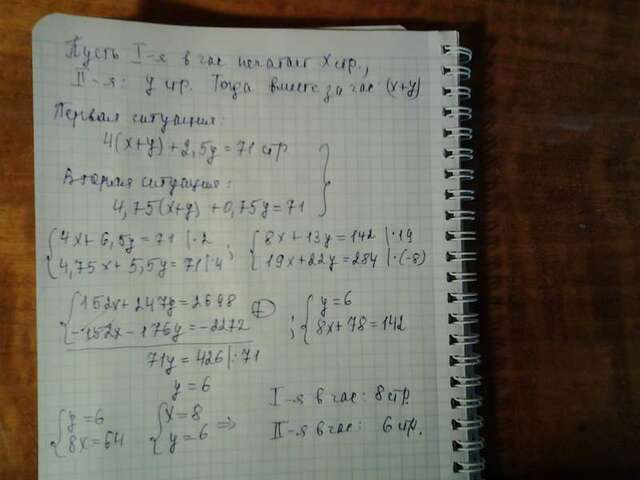 Пусть I-я в час печатает x стр.,
II-я: y стр. Тогда вместе за час (x+y)
Первая ситуация:
4(x+y)+2,5y=71 стр
Вторая ситуация:
4,75(x+y)+0,75y=71
{4x+6,5y=71 |·2 ; {8x+13y=142 |·19
{4,75x+5,5y=71 |·4 {19x+22y=284 |·(-8)
{152x+247y=2698 (+) {y=6
{-152x-176y=-2272 ; {8x+78=142
71y=426 |:71
y=6
I-я в час: 8 стр.
{y=6 {x=8
{8x=64 {y=6 => II-я в час: 6 стр.